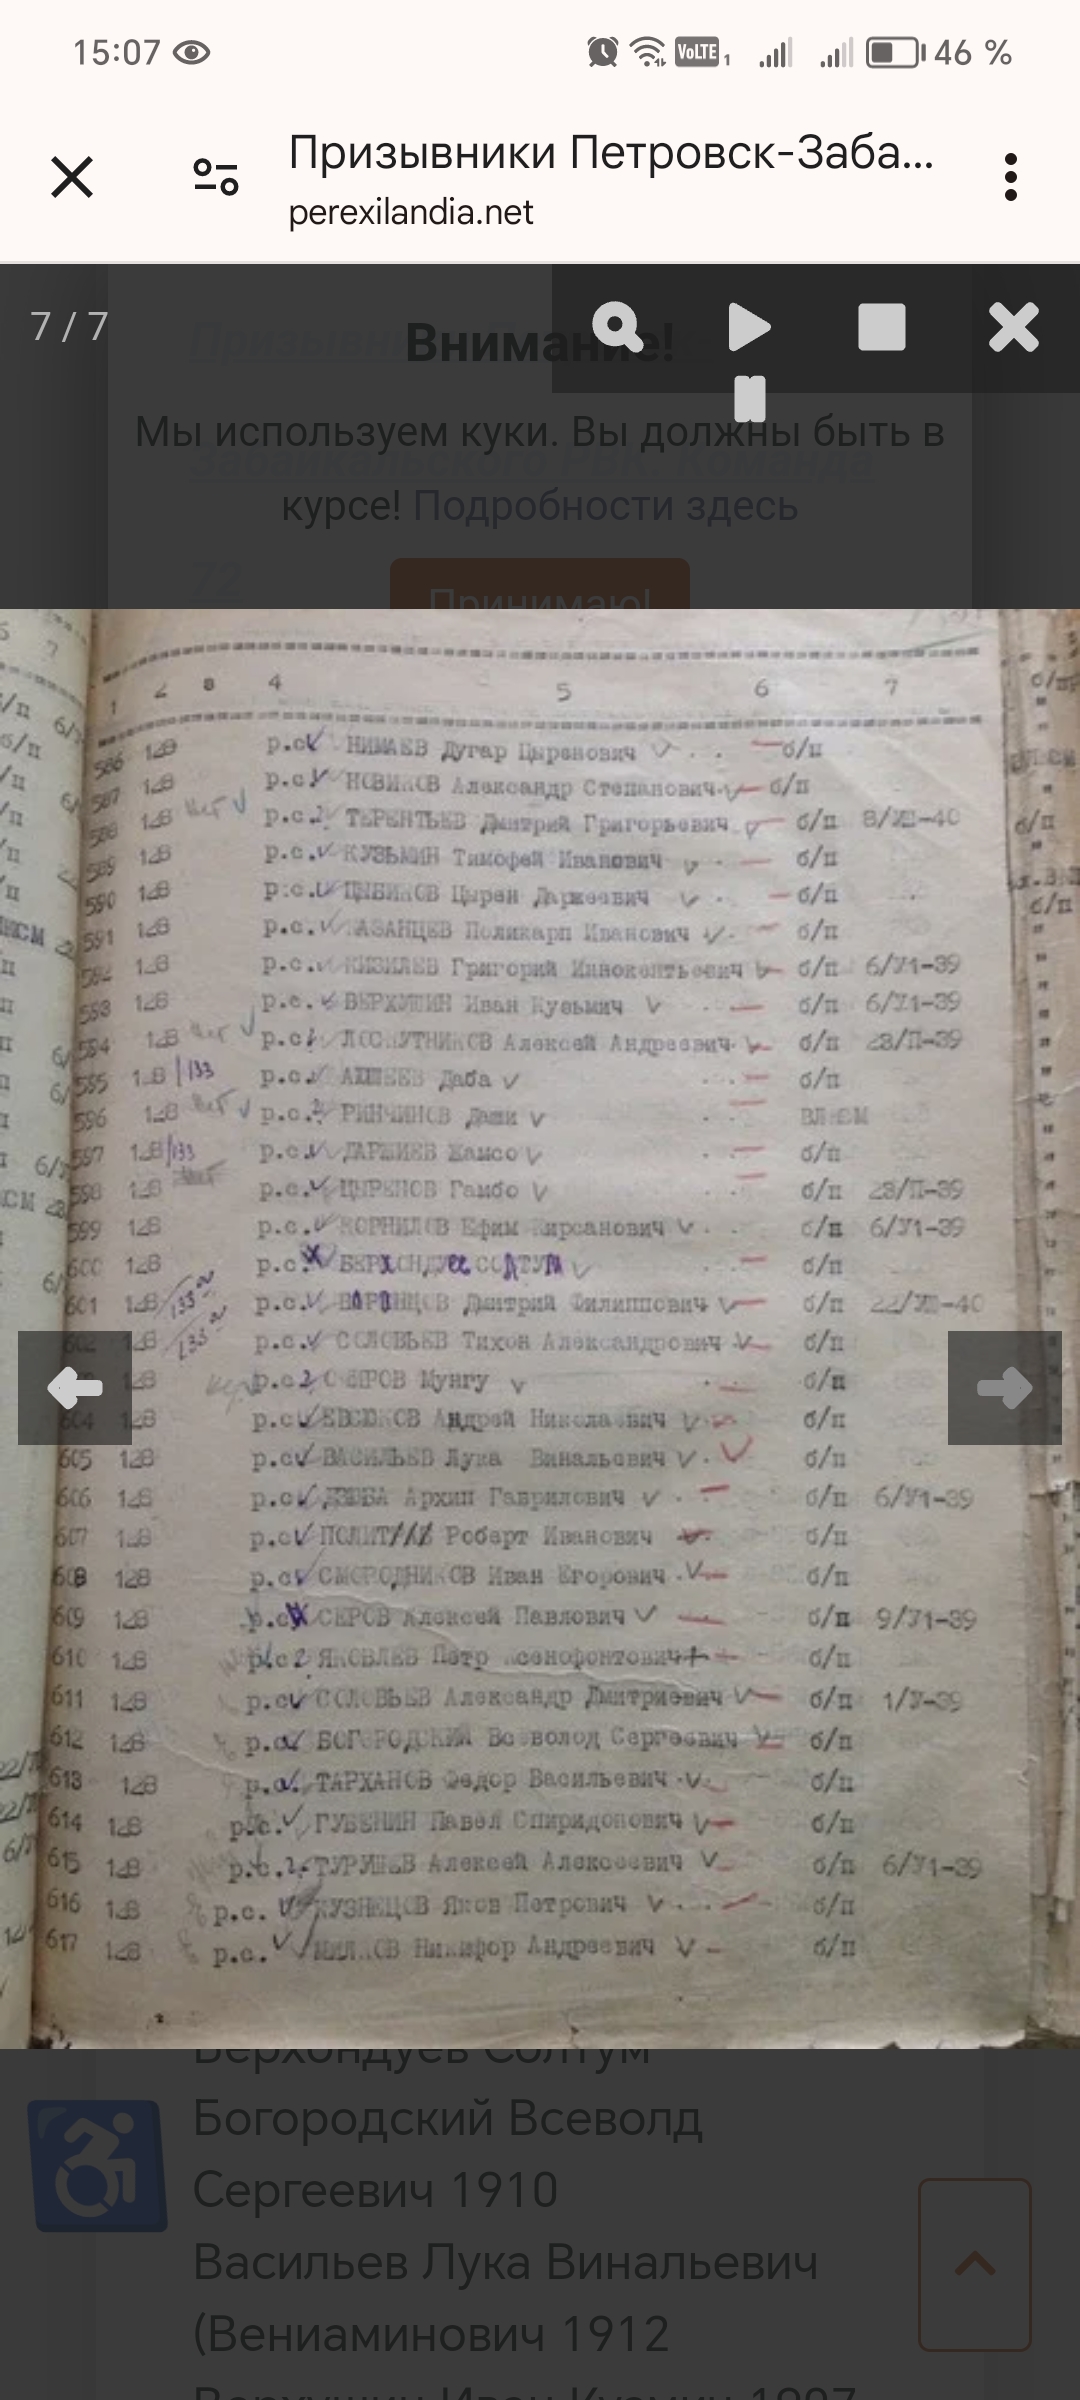 15:07 VoLTE 1 46 %
Призывники Петровск-Заба...
perexilandia.net
7 / 7
Внимание!
Мы используем куки. Вы должны быть в
Забайкальского РВК. Команда
курсе! Подробности здесь
72
Принимаю!
1 2 3 4 5 6 7
586 128 р.с. НИМАЕВ Дугар Цыренович б/п
587 128 р.с. НОВИКОВ Александр Степанович б/п
588 128 нет р.с. ТЕРЕНТЬЕВ Дмитрий Григорьевич б/п 8/УП-40
589 128 р.с. КУЗЬМИН Тимофей Иванович б/п
590 128 р.с. ЦЫБИКОВ Цырен Даржеевич б/п
591 128 р.с. КАЗАНЦЕВ Поликарп Иванович б/п
592 128 р.с. Григорий Иннокентьевич б/п 6/У1-39
593 128 р.с. ВЕРХУШИН Иван Кузьмич б/п 6/У1-39
594 128 нет р.с. ЛОСКУТНИКОВ Алексей Андреевич б/п 23/П-39
595 128/133 р.с. Даба б/п
596 128 нет р.с. РИНЧИНОВ Даши ВЛКСМ
597 128/133 р.с. ДАРШИЕВ Жамсо б/п
598 128 р.с. ЦЫРЕНОВ Гамбо б/п 23/П-39
599 128 р.с. КОРНИЛОВ Ефим Кирсанович б/п 6/У1-39
600 128 р.с. БЕРХОНДУЕВ СОЛТУМ б/п
601 128/133 р.с. Дмитрий Филиппович б/п 22/УП-40
602 128/133 р.с. СОЛОВЬЕВ Тихон Александрович б/п
128 р.с. Мунгу б/п
604 128 р.с. ЕВСЮКОВ Андрей Николаевич б/п
605 128 р.с. ВАСИЛЬЕВ Лука Винальевич б/п
606 128 р.с. ДЗЮБА Архип Гаврилович б/п 6/У1-39
607 128 р.с. Роберт Иванович б/п
608 128 р.с. СМОРОДНИКОВ Иван Егорович б/п
609 128 р.с. СЕРОВ Алексей Павлович б/п 9/У1-39
610 128 р.с. ЯКОВЛЕВ Петр ксенофонтович б/п
611 128 р.с. СОЛОВЬЕВ Александр Дмитриевич б/п 1/У-39
612 128 р.с. БОГОРОДСКИЙ Всеволод Сергеевич б/п
613 128 р.с. ТАРХАНОВ Федор Васильевич б/п
614 128 р.с. ГУБЕНИН Павел Спиридонович б/п
615 128 р.с. ТУРУШЕВ Алексей Алексеевич б/п 6/У1-39
616 128 р.с. КУЗНЕЦОВ Яков Петрович б/п
617 128 р.с. Никифор Андреевич б/п
Берхондуев Солтум
Богородский Всеволд
Сергеевич 1910
Васильев Лука Винальевич
(Вениаминович 1912
Верхушин Иван Кузмич 1907